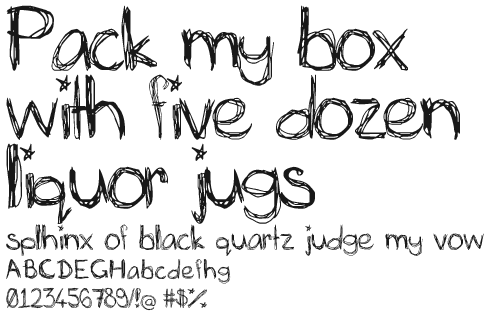 Pack my box
with five dozen
liquor jugs
splhinx of black quartz judge my vow
ABCDEGHabcdefhg
0123456789/!@ #$%